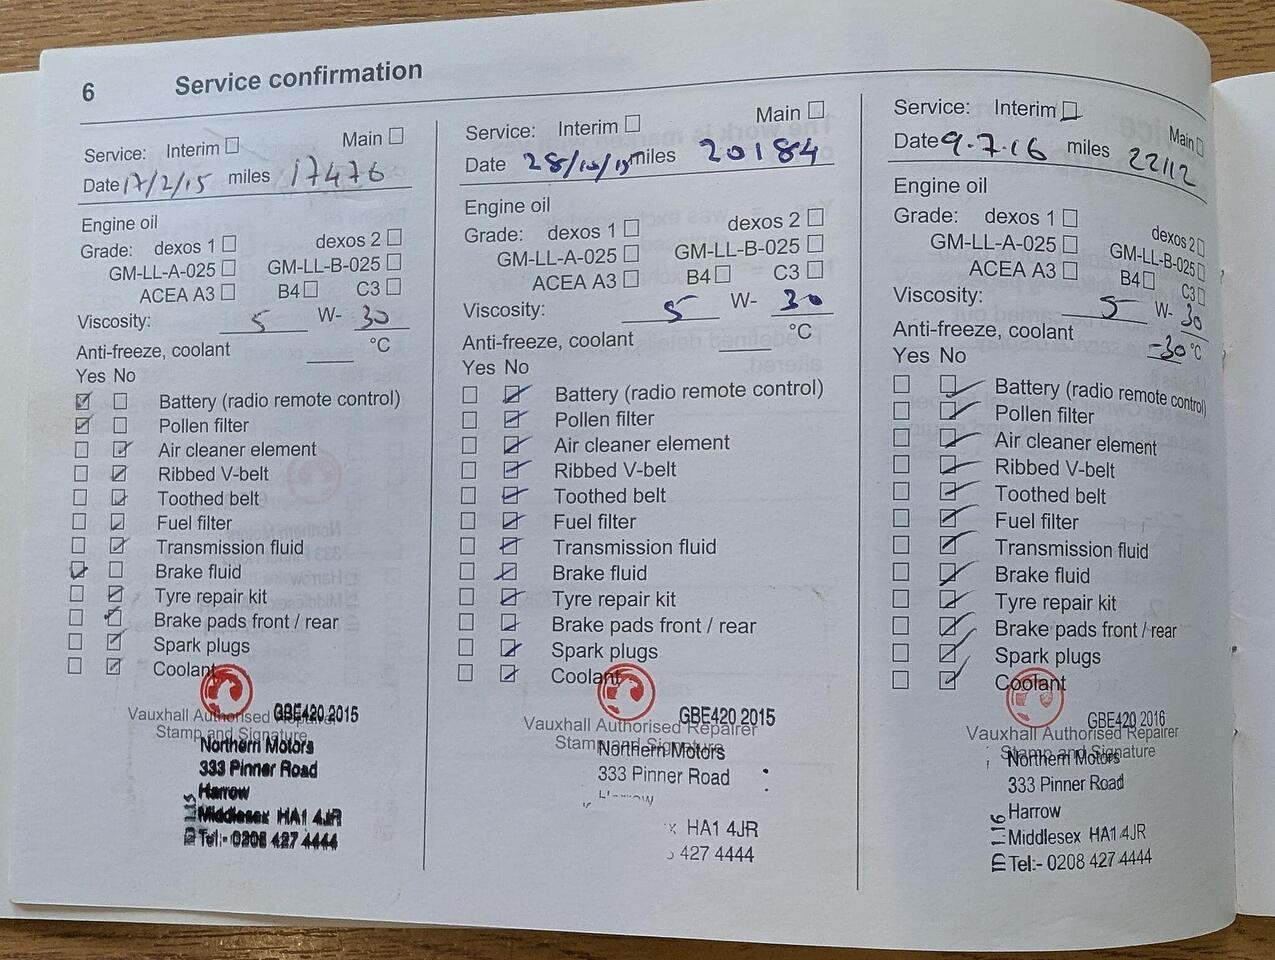 6 Service confirmation
Service: Interim Main
Date 17/2/15 miles 17476
Engine oil
Grade: dexos 1 dexos 2
GM-LL-A-025 GM-LL-B-025
ACEA A3 B4 C3
Viscosity: 5 W- 30
Anti-freeze, coolant °C
Yes No
Battery (radio remote control)
Pollen filter
Air cleaner element
Ribbed V-belt
Toothed belt
Fuel filter
Transmission fluid
Brake fluid
Tyre repair kit
Brake pads front / rear
Spark plugs
Coolant
Vauxhall Authorised Repairer
Stamp and Signature
GBE420 2015
Northern Motors
333 Pinner Road
Harrow
Middlesex HA1 4JR
Tel:- 0208 427 4444
Service: Interim Main
Date 28/10/15 miles 20184
Engine oil
Grade: dexos 1 dexos 2
GM-LL-A-025 GM-LL-B-025
ACEA A3 B4 C3
Viscosity: 5 W- 30
Anti-freeze, coolant °C
Yes No
Battery (radio remote control)
Pollen filter
Air cleaner element
Ribbed V-belt
Toothed belt
Fuel filter
Transmission fluid
Brake fluid
Tyre repair kit
Brake pads front / rear
Spark plugs
Coolant
GBE420 2015
Vauxhall Authorised Repairer
Stamp and Signature
Northern Motors
333 Pinner Road
Harrow
HA1 4JR
427 4444
Service: Interim Main
Date 9.7.16 miles 22112
Engine oil
Grade: dexos 1 dexos 2
GM-LL-A-025 GM-LL-B-025
ACEA A3 B4 C3
Viscosity: 5 W- 30
Anti-freeze, coolant -30 °C
Yes No
Battery (radio remote control)
Pollen filter
Air cleaner element
Ribbed V-belt
Toothed belt
Fuel filter
Transmission fluid
Brake fluid
Tyre repair kit
Brake pads front / rear
Spark plugs
Coolant
GBE420 2016
Vauxhall Authorised Repairer
Stamp and Signature
Northern Motors
333 Pinner Road
Harrow
Middlesex HA1 4JR
Tel:- 0208 427 4444
ID 1.16